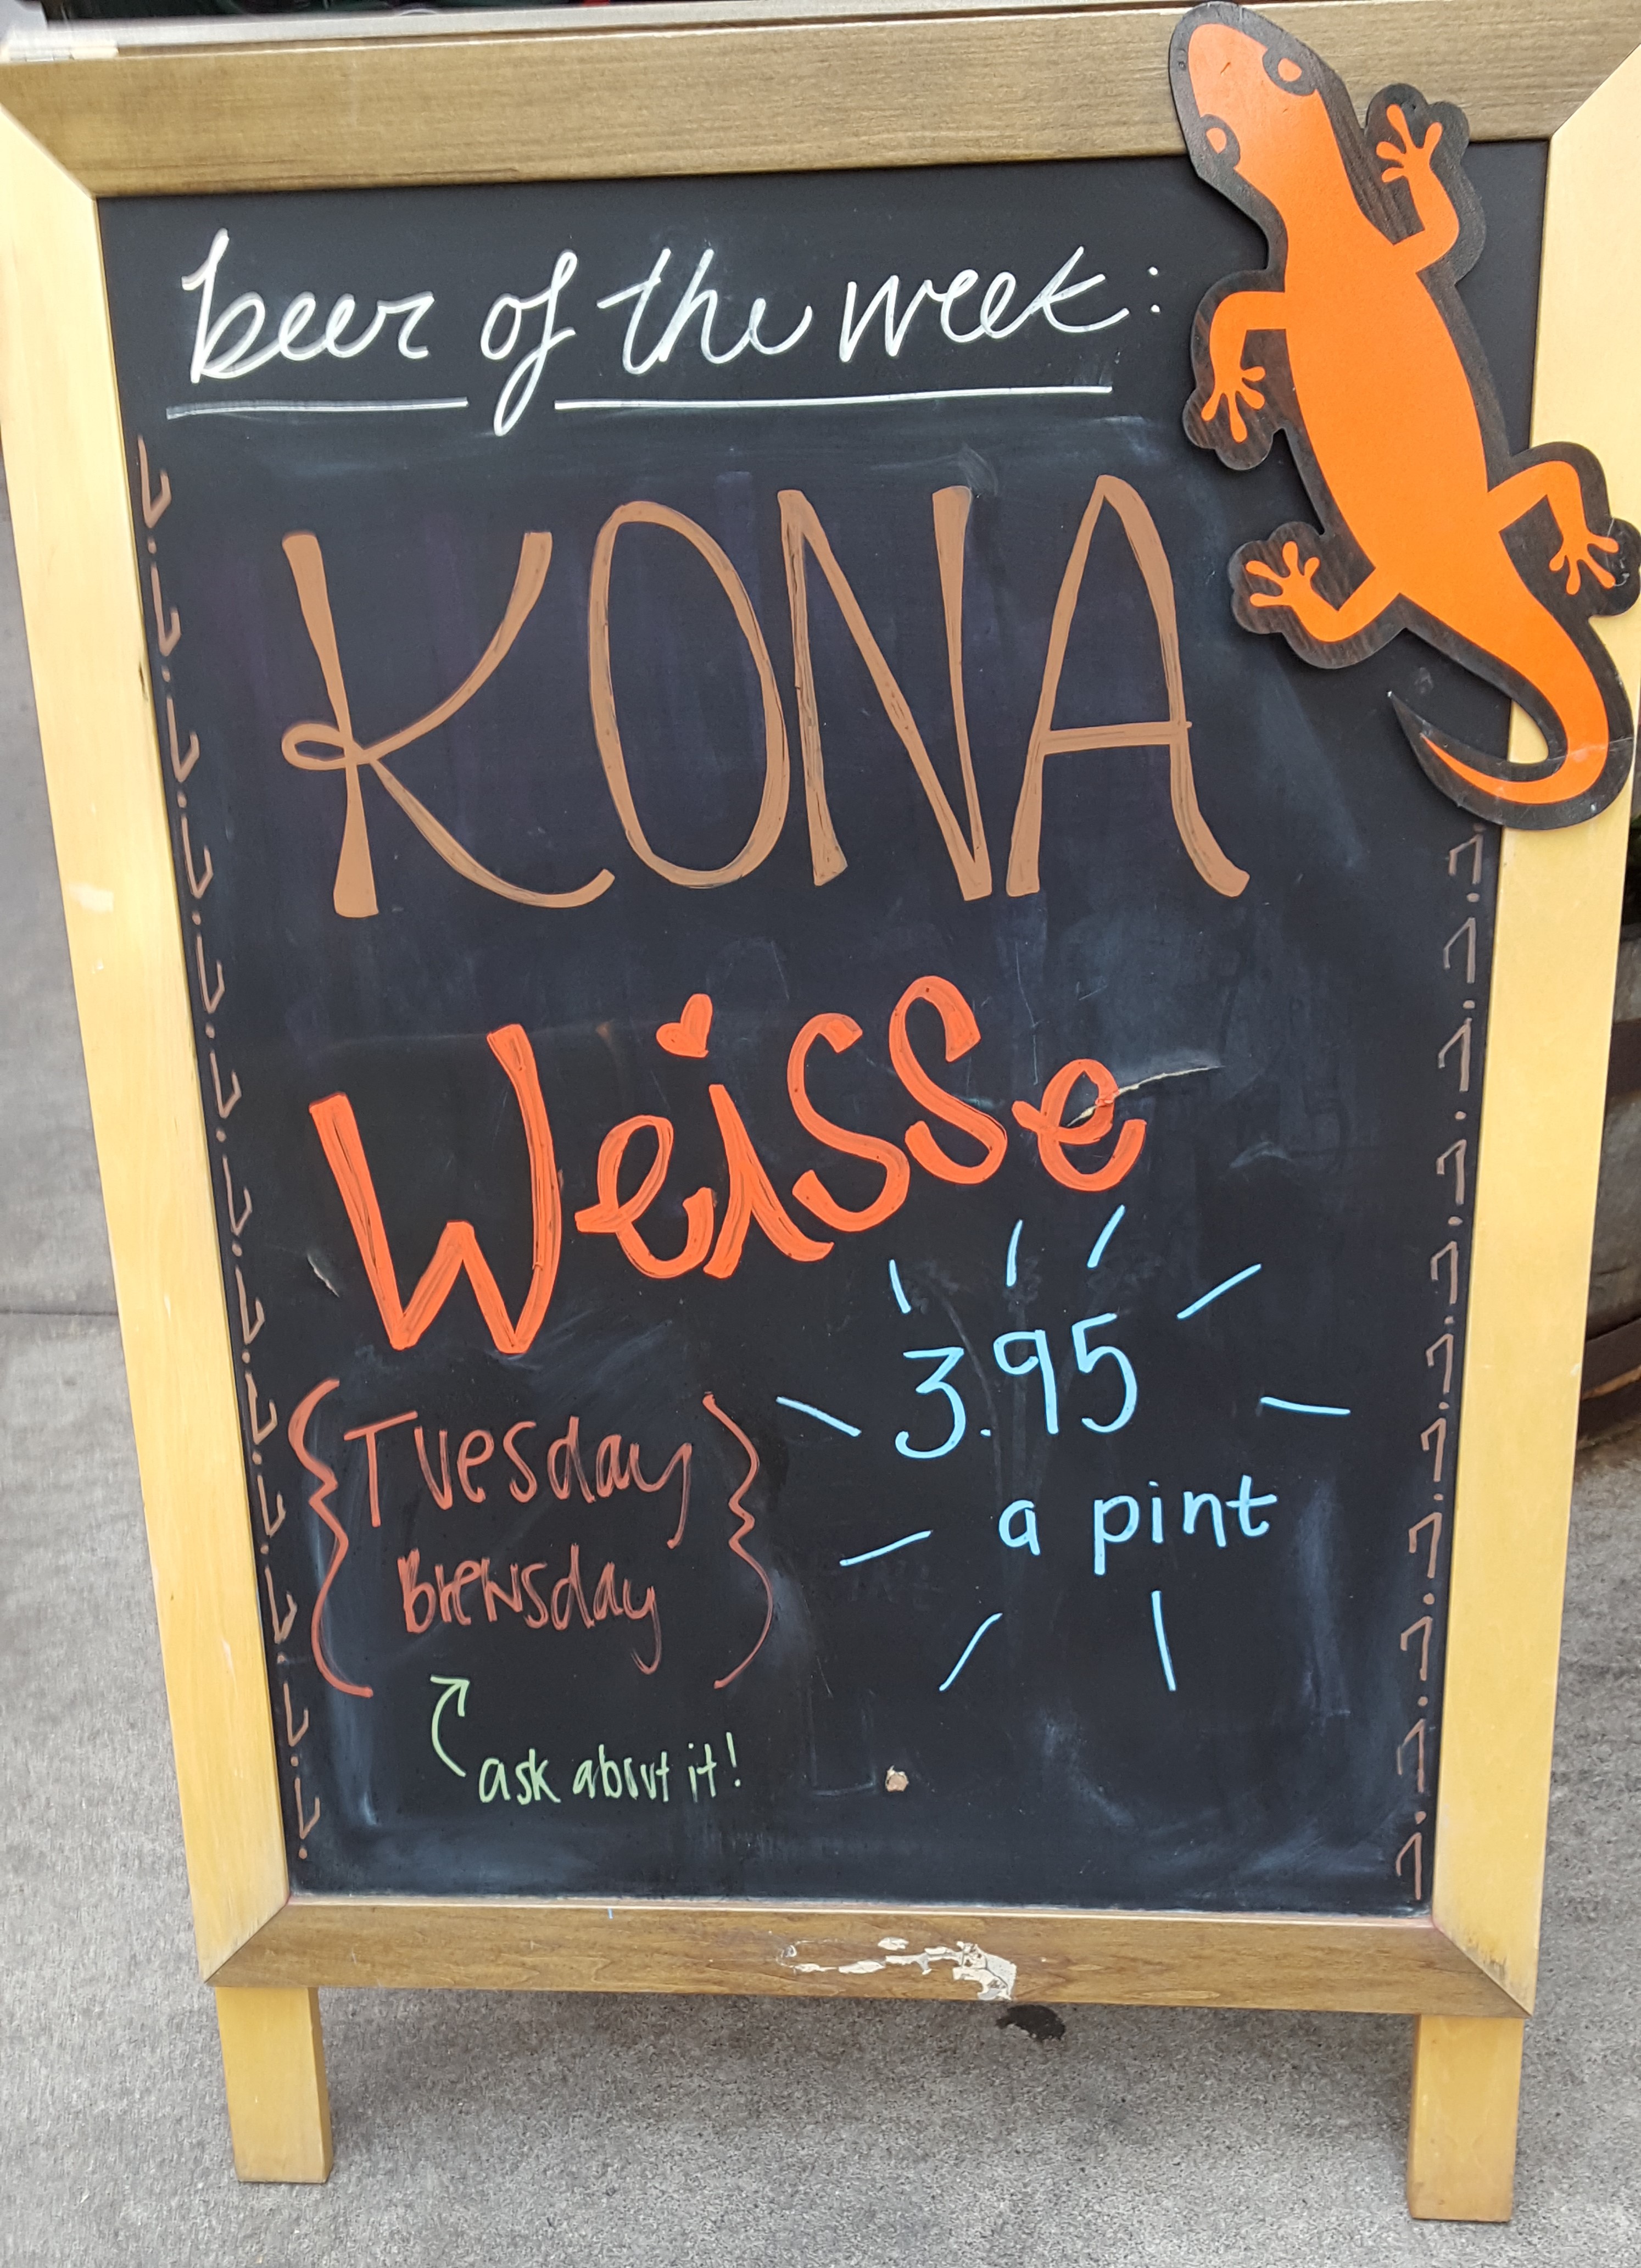 beer of the week:
KONA
Weisse
3.95
a pint
{Tuesday
Brewsday}
ask about it!